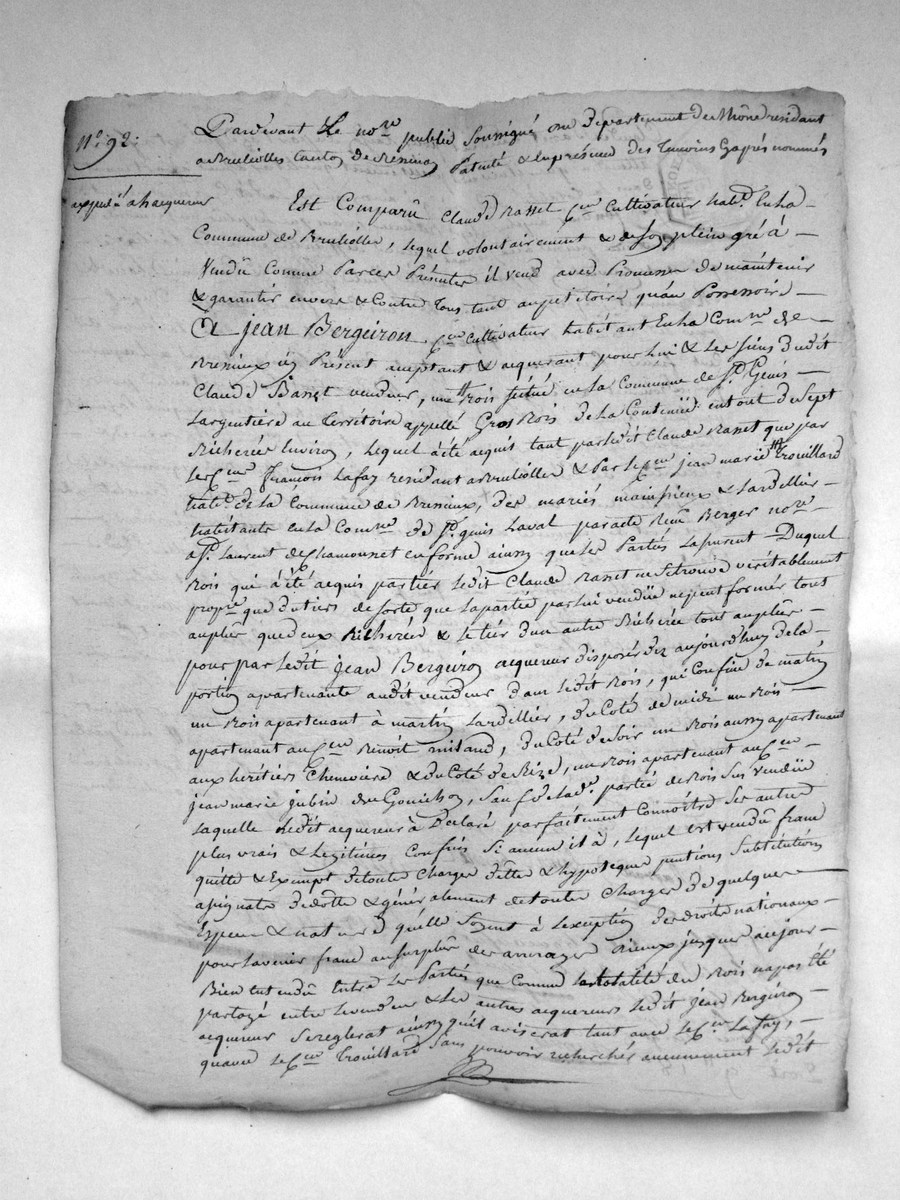 N.º 92:
Pardevant Le no.re public soussigné au Departement du Rhône residant
a Brulliolles Canton de Bessenay Patenté & en presence des Temoins cy après nommés
expedié a L'acquereur
Est Comparû Claude Basset C.en Cultivateur hab.t En La
Commune de Brulliolles, Lequel volontairement & de son plein gré à
Vendû Comme Par ces Présentes il vend avec Promesse de maintenir
& garantir envers & Contre Tous tant au petitoire qu'au Possessoire
A jean Bergeiron C.en Cultivateur habitant En La Comm.ne de
Bressieux ici Présent acceptant & acquerant pour Lui & Les siens dudit
Claude Basset vendeur, un Bois situé en La Commune de S.t Genis
L'argentiere au Territoire appellé Gros Bois de La Contenüe en tout de sept
Bicherées Environ, Lequel a été acquis tant par ledit Claude Basset que par
Le C.en François Lafay residant a Brulliolles & Par Le C.en jean marie Trouillard
hab.t de La Commune de Bressieux, des mariés mainssieux & Lardellier
habitants en La Com.ne de S.t genis Laval par acte Reçu Berger no.re
a S.t Laurent de Chamousset en forme ainsy que Les Parties L'assurent Duquel
Bois qui a été acquis partie ledit Claude Basset ne se trouve véritablement
propre que du tiers de sorte que La partie par lui vendüe ne peut former tout
au plus que deux Bicherées & Le tier d'un autre Bicherée tout au plus
pour par Ledit Jean Bergeiron acquereur disposer dez aujourd'huy de La
portion apartenante audit vendeur dans Ledit Bois, qui Confine de matin
un Bois apartenant à martin Lardellier, du Coté de midi un Bois
apartenant au C.en Benoit miland, du Coté de soir un Bois aussy apartenant
aux heritiers Cheneviere & du Coté de Bize, un Bois apartenant au C.en
jean marie jubin du Gonichon, sauf de Lad.e partie de Bois sus vendüe
Laquelle Ledit acquereur à Déclaré parfaitement Connoître ses autres
plus vrais & Legitimes Confins si aucun il à, Lequel est vendû franc
quitte & Exempt de toutes Charges dette & hypoteque pentions Substitutions
assignats de dotte & généralement de toute Charges de quelques
Especes & nature quelles soient à L'exeption des droits nationaux
pour L'avenir franc au surplus des arrerages d'iceux jusques au jour
Bien entendû entre Les Parties que Comme La totalité du Bois n'a pas été
partagé entre Le vendeur & Les autres acquereurs Ledit jean Bergeiron
acquereur se reglerat ainsy qu'il aviserat tant avec Le C.en Lafay,
qu'avec Le C.en Trouillard sans pouvoir rechercher aucunement Ledit